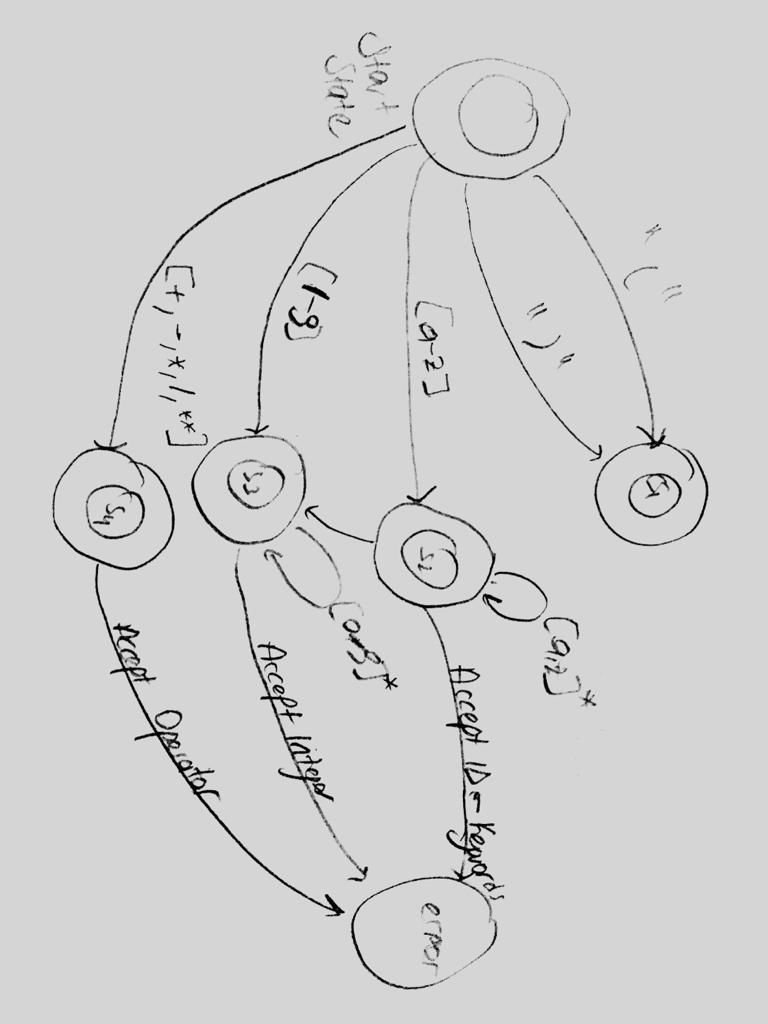 Start
State
"("
")"
[a-z]
[1-9]
[+,-,*,/,**]
S1
S2
S3
S4
[a,z]*
[0-9]*
Accept ID - Keywords
Accept Integer
Accept Operator
error